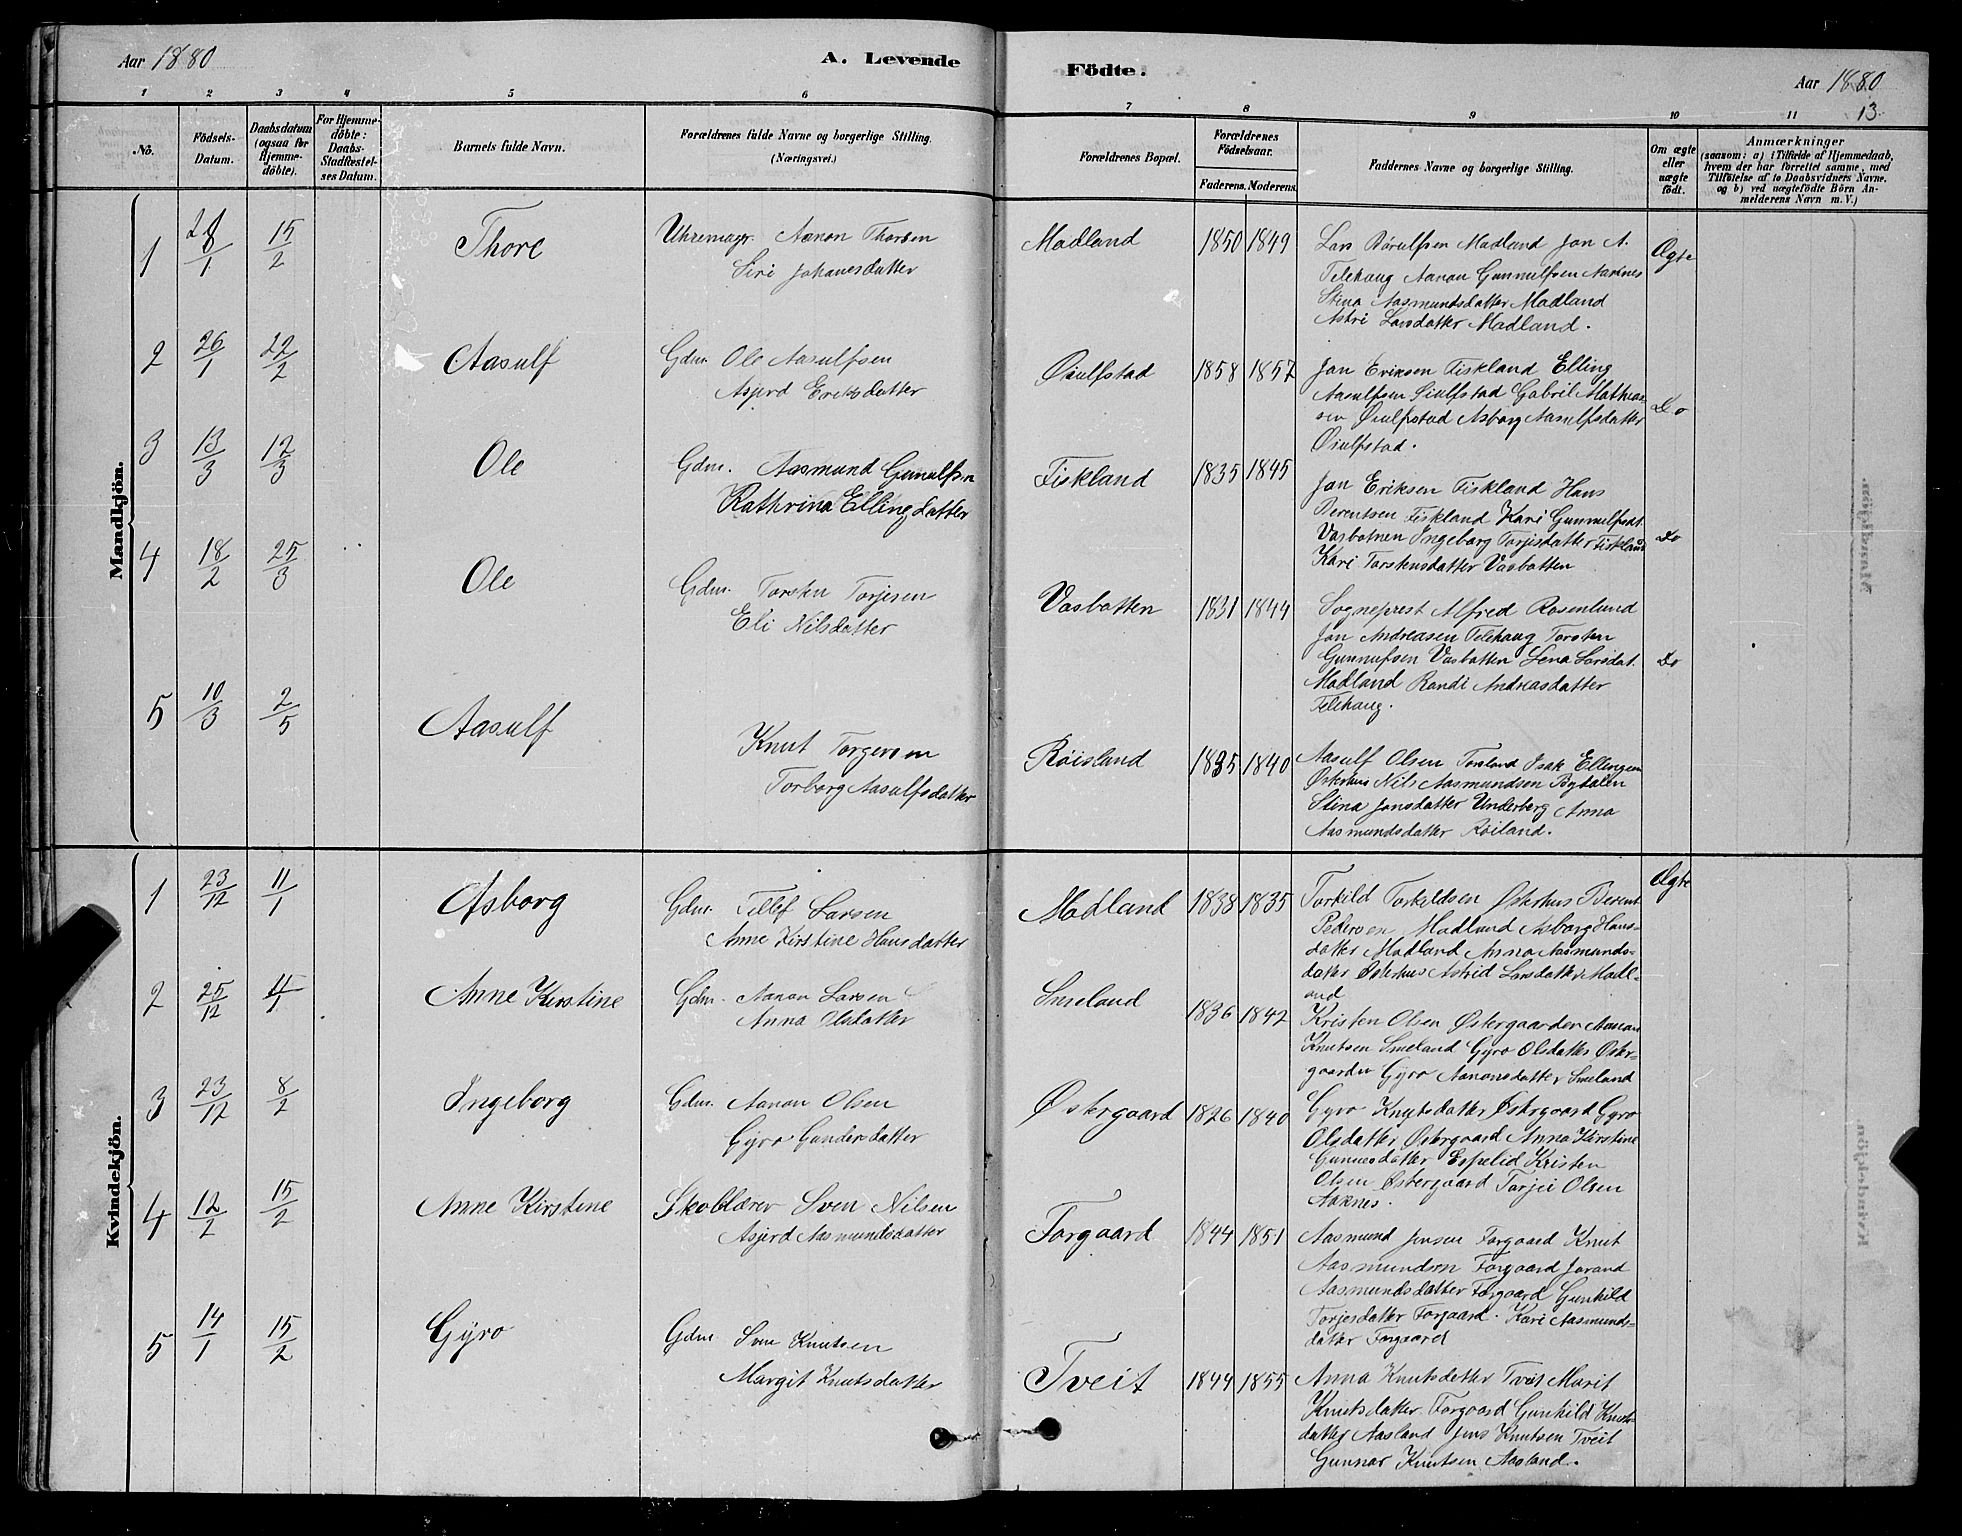 Aar 1880
A. Levende
Födte.
Aar 1880
13
1 2 3 4 5 6 7 8 9 10 11
No.
Födsels-
Datum.
Daabsdatum
(ogsaa for
Hjemme-
döbte).
For Hjemme-
döbte:
Daabs-
Stadfæstel-
ses Datum.
Barnets fulde Navn.
Forældrenes fulde Navne og borgerlige Stilling.
(Næringsvei.)
Forældrenes Bopæl.
Forældrenes
Födselsaar.
Faderens. Moderens.
Faddernes Navne og borgerlige Stilling.
Om ægte
eller
uægte
födt.
Anmærkninger
(saasom: a) i Tilfælde af Hjemmedaab,
hvem der har forrettet samme, med
Tilföielse af to Daabsvidners Navne.
og b) ved uægtefödte Börn An-
melderens Navn m. V.)
Mandkjön.
1 15/2 Thore
Uhremagr. Aanon Thorsen
Siri Johanesdatter
Madland 1850 1849
Lars Madland Jon A.
Telehaug Aanon Gunnulfsen Aaknes
Stina Aasmundsdatter Madland
Astri Larsdatter Madland.
Ægte
2 26/1 22/2 Aasulf
Gdm. Ole Aasulfsen
Asjerd Eriksdatter
Øiulfstad 1858 1857
Jon Eriksen Fiskland Elling
Aasulfsen Øiulfstad Gabriel Mathias-
sen Øiulfstad Asborg Aasulfsdatter
Øiulfstad.
Do
3 13/3 12/3 Ole
Gdm. Aasmund Gunulfsn
Kathrina Ellingsdatter
Fiskland 1835 1845
Jon Eriksen Fiskland Hans
Berentsen Fiskland Kari Gunnulfsdt.
Vasbotnen Ingeborg Torjisdatter Fiskland
Kari Torstensdatter Vasbotten
Do
4 18/2 25/3 Ole
Gdm. Torsten Torjesen
Eli Nilsdatter
Vasbotten 1831 1844
Sogneprest Alfred Rosenlund
Jon Andreasen Telehaug Torsten
Gunnufsen Vasbotten Lena Larsdat.
Madland Randi Andreasdatter
Telehaug.
Do
5 10/3 2/5 Aasulf
Knut Torgersen
Torborg Aasulfsdatter
Röisland 1835 1840
Aasulf Olsen Isak Ellingsen
Østerhus Nils Aasmundsen Bygdalen
Stina Jonsdatter Underberg Anna
Aasmundsdatter Röiland.
Kvindekjön.
1 23/12 11/1 Asborg
Gdm. Tellef Larsen
Anne Kirstine Hansdatter
Madland 1838 1835
Torkild Torkildsen Østerhus Berent
Pedersen Madland Asborg Hans-
datter Madland Anna Aasmunds-
datter Østerhus Astrid Larsdatter Madl-
and
Ægte
2 25/12 Anne Kirstine
Gdm. Aanon Larsen
Anna Olsdatter
Smeland 1836 1842
Kristen Olsen Østergaarden Aanon
Knutsen Smeland Gyro Olsdatter Øster-
gaarden Gyro Aanonsdatter Smeland
3 23/12 8/2 Ingeborg
Gdm. Aanon Olsen
Gyro Gundersdatter
Østergaard 1826 1840
Gyro Knutsdatter Østergaard Gyro
Olsdatter Østergaard Anna Kirstine
Gunnesdatter Espelid Kristen
Olsen Østergaard Torjei Olsen
Aaknes.
4 12/2 15/2 Anne Kirstine
Skolelærer Sven Nilsen
Asjerd Aasmundsdatter
Forgaard 1844 1851
Aasmund Jensen Forgaard Knut
Aasmundsen Forgaard Jorand
Aasmundsdatter Forgaard Gunhild
Torjesdatter Forgaard. Kari Aasmunds-
datter Forgaard
5 14/1 15/2 Gyro
Gdm Sven Knutsen
Margit Knutsdatter
Tveit 1844 1855
Anna Knutsdatter Tveit Marit
Knutsdatter Forgaard Gunhild Knuts-
datter Aasland Jens Knutsen Tveit
Gunnar Knutsen Aasland.